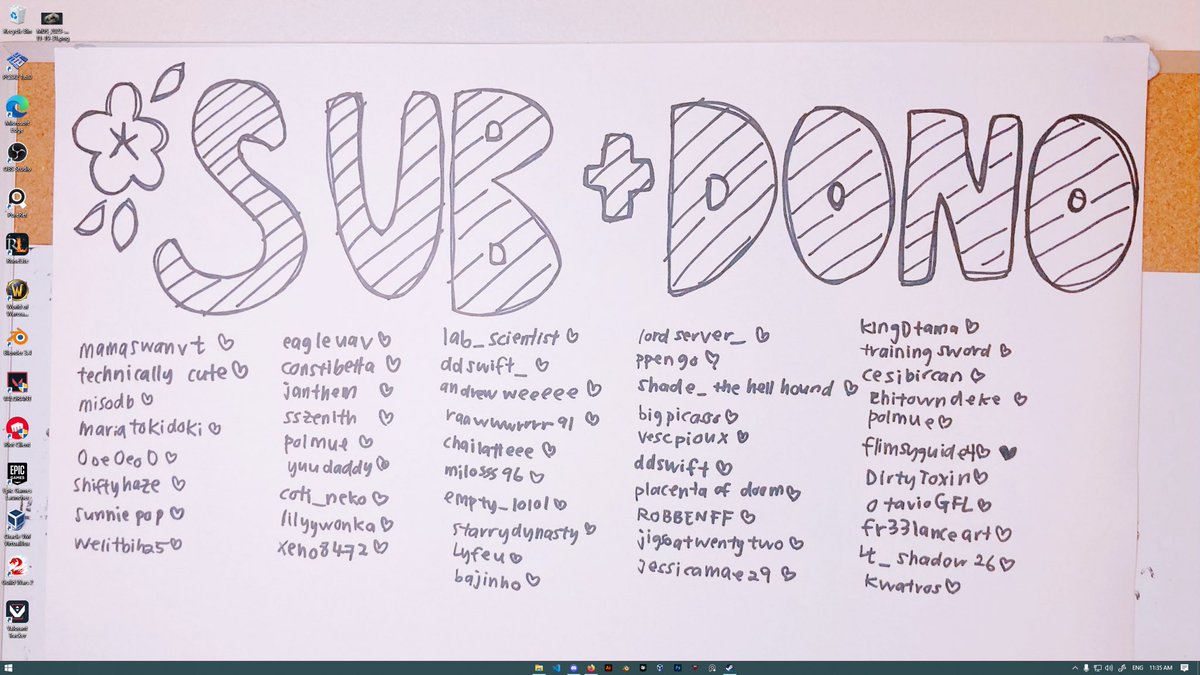 Recycle Bin
Microsoft Edge
OBS Studio
PureRef
RuneLite
World of Warcra...
Blender 3.4
VALORANT
Riot Client
Epic Games Launcher
Oracle VM VirtualBox
Guild Wars 2
Valorant Tracker
SUB + DONO
mamaswanvt
technically cute
misodb
mariatokidoki
OoeOeoO
shiftyhaze
sunniepop
eagleuav
constibetta
janthem
sszenith
palmue
yuudaddy
coti_neko
lilyywonka
xeno8472
lab_scientist
ddswift_
andrewweeeee
chailatteee
milosss96
empty_lolol
starrydynasty
Lyfeu
bajinho
lordserver_
ppengo
shade_the hell hound
bigpicasso
vescpioux
ddswift
placenta of doom
ROBBENFF
jigsatwentytwo
jessicamae29
kingDtama
trainingsword
cesibircan
palmue
flimsyguide4
DirtyToxin
OtavioGFL
fr33lanceart
Lt_shadow26
kwatros
ENG
11:35 AM